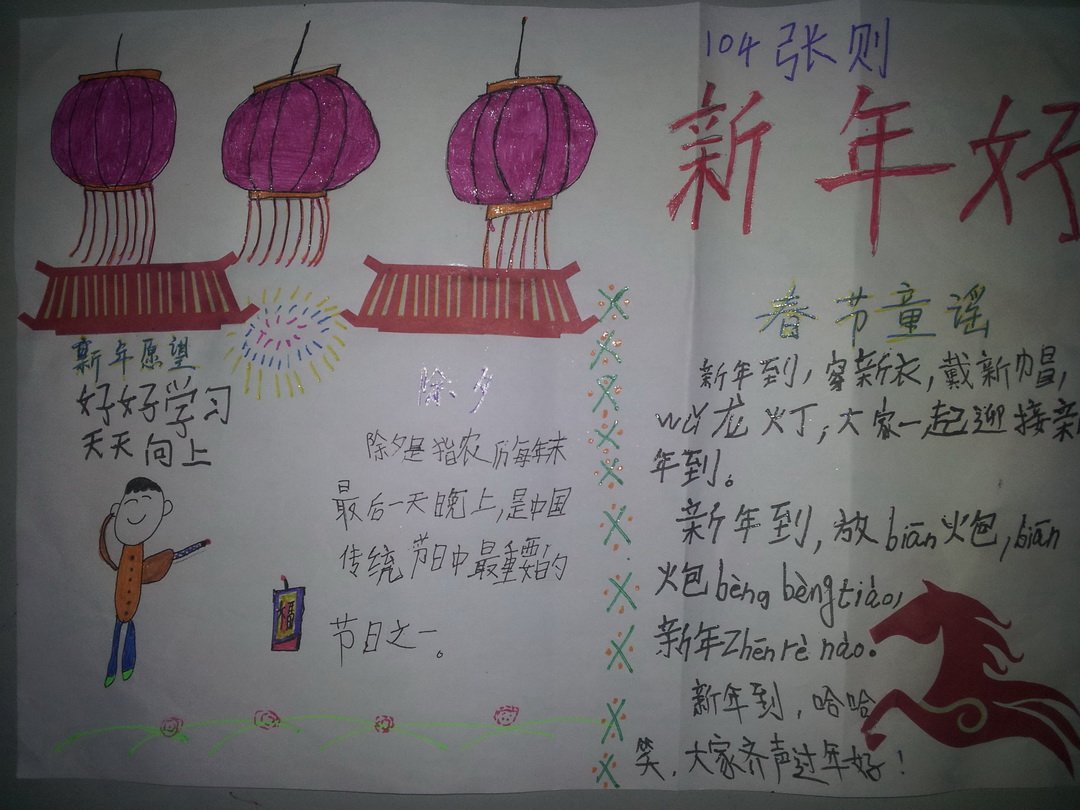 104 张则
新年好
新年愿望
好好学习
天天向上
除夕
除夕是指农历每年末
最后一天晚上,是中国
传统节日中最重要的
节日之一。
福
春节童谣
新年到,穿新衣,戴新帽,
wǔ龙火丁,大家一起迎接新
年到。
新年到,放biān火包,biān
火包bèng bèng tiào,
新年Zhēn rè nào。
新年到,哈哈
笑,大家齐声过年好!